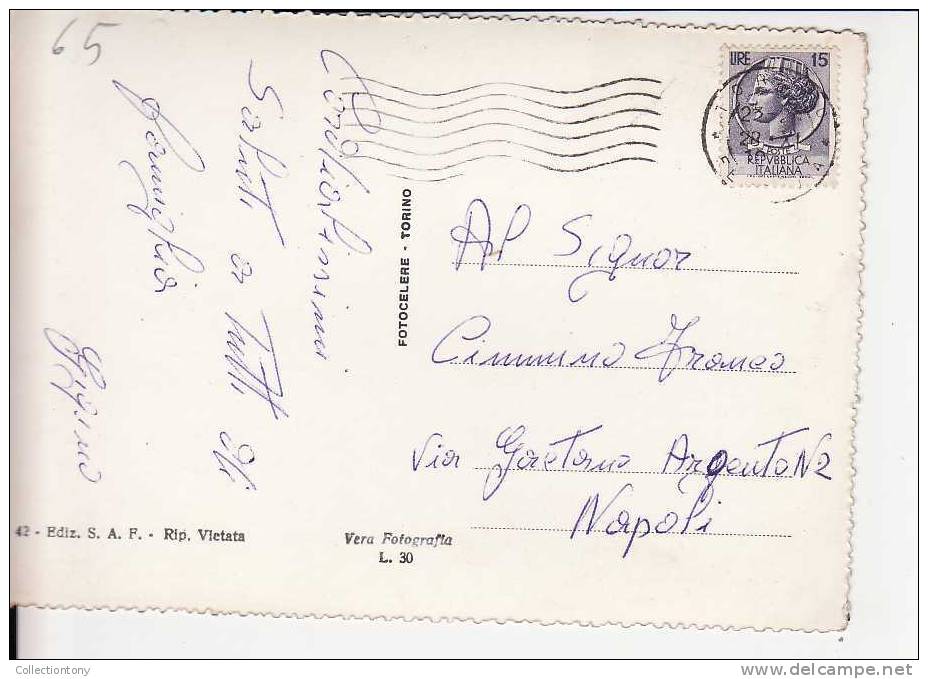 65
Cordialissimi
Saluti a Tutti di
famiglia
Gigino
42 - Ediz. S. A. F. - Rip. Vietata
Vera Fotografia
L. 30
FOTOCELERE - TORINO
LIRE 15
POSTE
REPVBBLICA
ITALIANA
Al Signor
Cimmino Franco
Via Gaetano Argento N2
Napoli
Collectiontony
delcampe.net